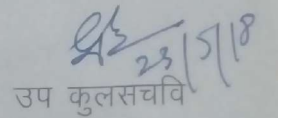 23/5/18
उप कुलसचवि